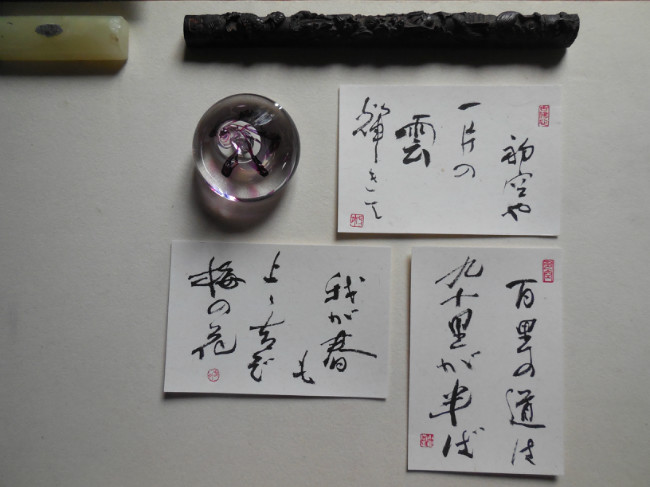 初空や
一片の
雲
輝きて
百里の道は
九十里が半ば
我が春も
上々吉ぞ
梅の花